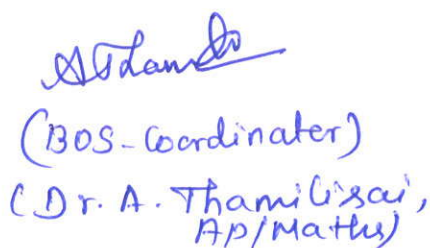 AThami
(BOS-Coordinater)
(Dr. A. Thamilisai,
AP/Maths)